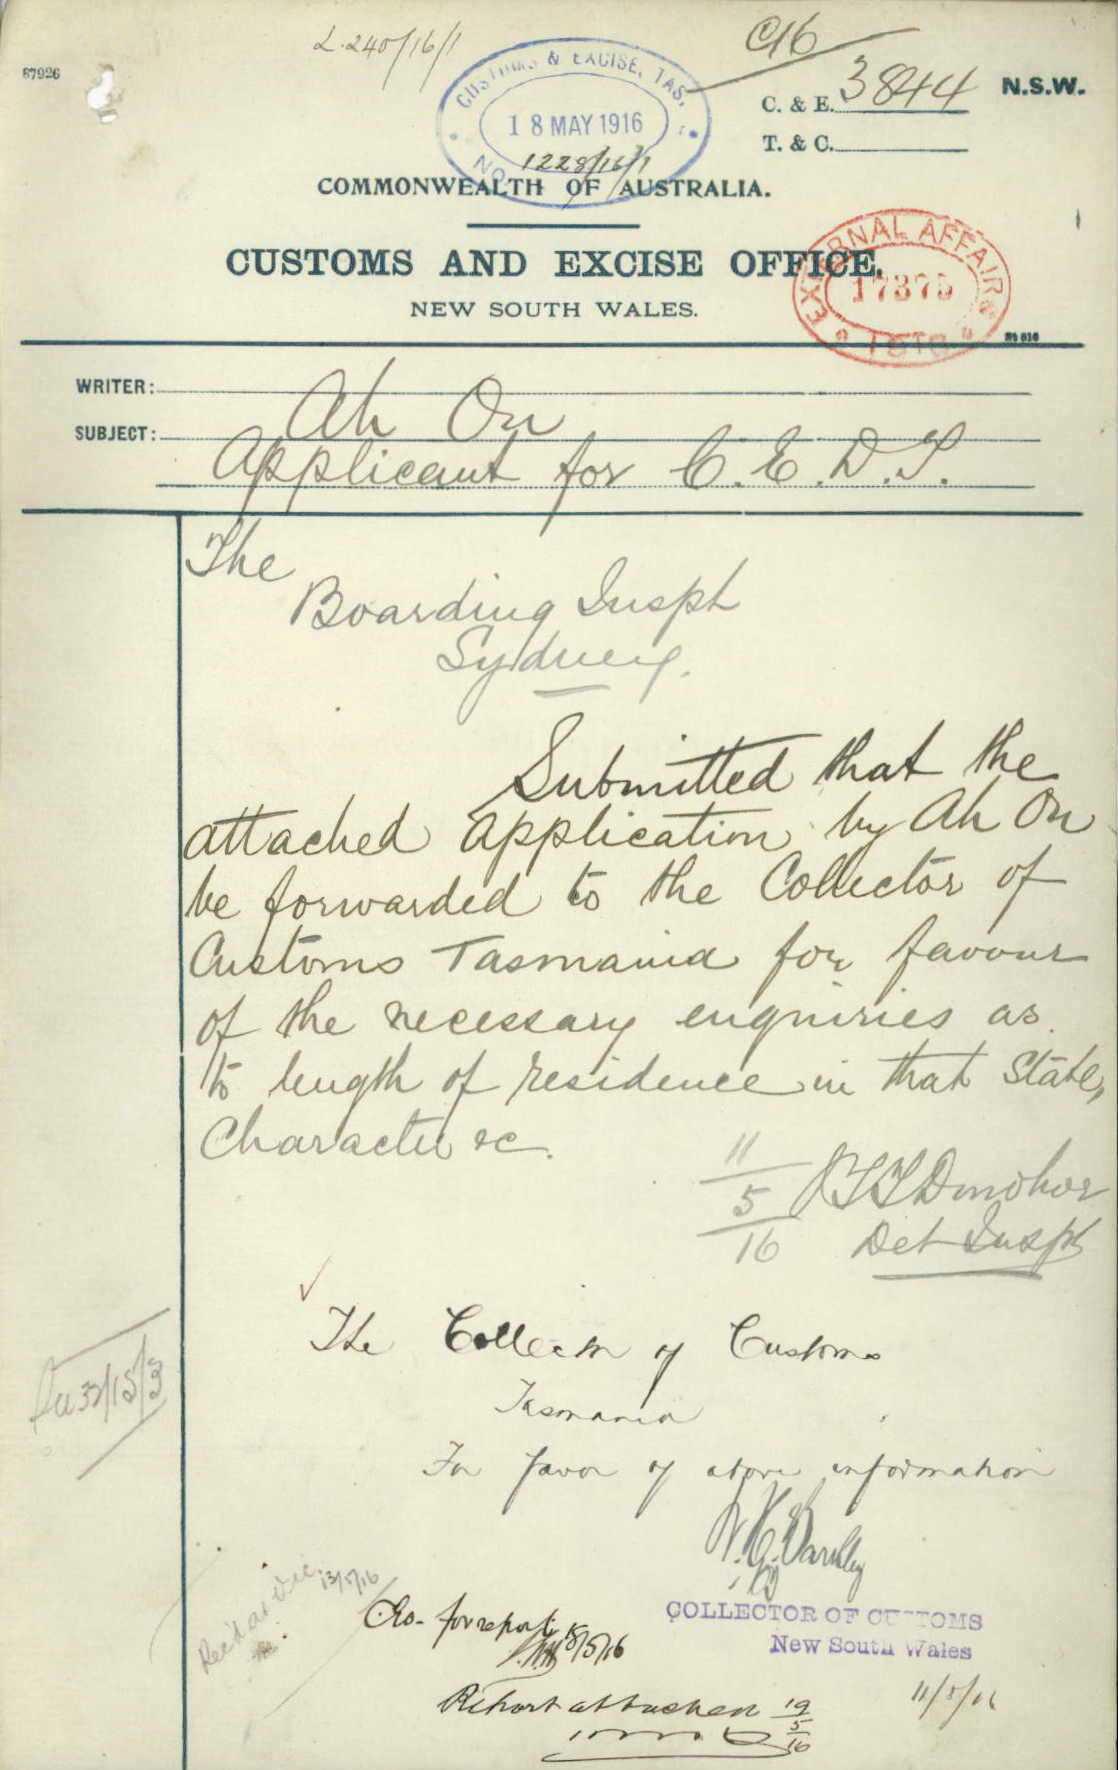 2.240/16/1
C16
67926
CUSTOMS & EXCISE, TAS.
18 MAY 1916
No 1228/16/1
C. & E. 3844
N.S.W.
T. & C.
COMMONWEALTH OF AUSTRALIA.
CUSTOMS AND EXCISE OFFICE,
NEW SOUTH WALES.
EXTERNAL AFFAIRS
WRITER:
Ah On
SUBJECT:
Applicant for C.E.D.T.
The
Boarding Inspt
Sydney.
Submitted that the
attached application by Ah On
be forwarded to the Collector of
Customs Tasmania for favour
of the necessary enquiries as
to length of residence in that State,
Character &c.
11/5/16
Donohoe
Det Inspt
The Collector of Customs
Tasmania
For favor of above information
W. H. Barkley
COLLECTOR OF CUSTOMS
New South Wales
11/5/16
13/5/16
for report
18/5/16
Report attached 19/5/16